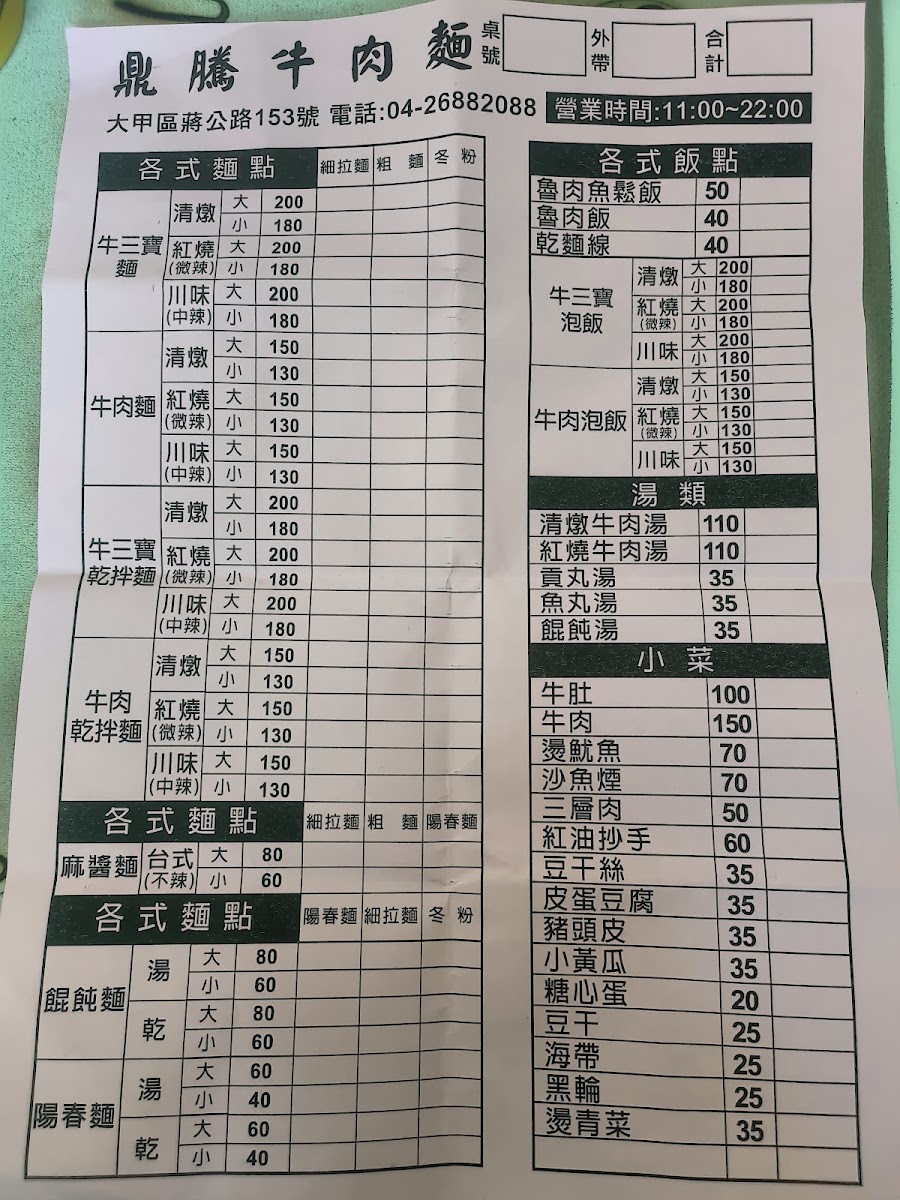 鼎騰牛肉麵
桌號 外帶 合計
大甲區蔣公路153號 電話:04-26882088 營業時間:11:00~22:00
各式麵點 細拉麵 粗麵 冬粉
牛三寶麵
清燉 大 200
小 180
紅燒(微辣) 大 200
小 180
川味(中辣) 大 200
小 180
牛肉麵
清燉 大 150
小 130
紅燒(微辣) 大 150
小 130
川味(中辣) 大 150
小 130
牛三寶乾拌麵
清燉 大 200
小 180
紅燒(微辣) 大 200
小 180
川味(中辣) 大 200
小 180
牛肉乾拌麵
清燉 大 150
小 130
紅燒(微辣) 大 150
小 130
川味(中辣) 大 150
小 130
各式麵點 細拉麵 粗麵 陽春麵
麻醬麵 台式(不辣) 大 80
小 60
各式麵點 陽春麵 細拉麵 冬粉
餛飩麵
湯 大 80
小 60
乾 大 80
小 60
陽春麵
湯 大 60
小 40
乾 大 60
小 40
各式飯點
魯肉魚鬆飯 50
魯肉飯 40
乾麵線 40
牛三寶泡飯
清燉 大 200
小 180
紅燒(微辣) 大 200
小 180
川味 大 200
小 180
牛肉泡飯
清燉 大 150
小 130
紅燒(微辣) 大 150
小 130
川味 大 150
小 130
湯類
清燉牛肉湯 110
紅燒牛肉湯 110
貢丸湯 35
魚丸湯 35
餛飩湯 35
小菜
牛肚 100
牛肉 150
燙魷魚 70
沙魚煙 70
三層肉 50
紅油抄手 60
豆干絲 35
皮蛋豆腐 35
豬頭皮 35
小黃瓜 35
糖心蛋 20
豆干 25
海帶 25
黑輪 25
燙青菜 35